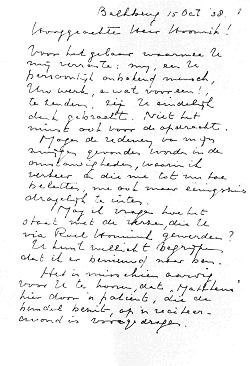 Bakkburg 15 Oct '38.
Hooggeachte Heer Hoornik!
Voor het gebaar waarmee U
mij verraste: mij, een U
persoonlijk onbekend mensch,
Uw werk, en wat voor een!,
te zenden, zij U eindelijk
dank gebracht. Niet het
minst ook voor de opdracht.
Moge de redenen van mijn
zwijgen gevonden worden in de
omstandigheden, waarin ik
verkeer en die me tot nu toe
beletten, me ook maar eenigszins
dragelijk te uiten.
Mag ik vragen hoe het
staat met de verzen, die U
via Ruul Hoornik gewerden?
U kunt wellicht begrijpen
dat ik er benieuwd naar ben.
Het is misschien aardig
voor U te hooren, dat „Mattheus"
hier door 'n patiënt, die de
bundel bezit, op 'n reciteer-
avond is voorgedragen.